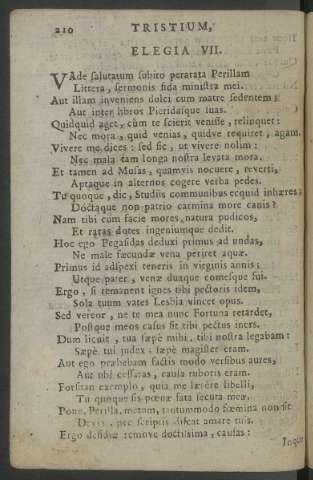 210 TRISTIUM,
ELEGIA VII.
VAde salutatum subito perarata Perillam
Littera, sermonis fida ministra mei.
Aut illam invenies dulci cum matre sedentem:
Aut inter libros Pieridasque suas.
Quidquid aget, cùm te scierit venisse, relinquet:
Nec mora, quid venias, quidve requiret, agam.
Vivere me dices: sed sic, ut vivere nolim:
Nec mala tam longa nostra levata mora.
Et tamen ad Musas, quamvis nocuere, reverti,
Aptaque in alternos cogere verba pedes.
Tu quoque, dic, Studiis communibus ecquid inhæres?
Doctaque non patrio carmina more canis?
Nam tibi cum facie mores natura pudicos,
Et raras dotes ingeniumque dedit.
Hoc ego Pegasidas deduxi primus ad undas,
Ne male fæcundæ vena periret aquæ.
Primus id adspexi teneris in virginis annis:
Utque pater, venæ duxque comesque fui.
Ergo, si remanent ignes tibi pectoris idem,
Sola tuum vates Lesbia vincet opus.
Sed vereor, ne te mea nunc Fortuna retardet,
Postque meos casus sit tibi pectus iners.
Dum licuit, tua sæpè mihi, tibi nostra legebam:
Sæpè tui judex: sæpè magister eram.
Aut ego præbebam factis modo versibus aures,
Aut ubi cessaras, causa ruboris eram.
Forsitan exemplo, quia me læsere libelli,
Tu quoque sis pœnæ fata secuta meæ.
Pone, Perilla, metum, tantummodo fœmina non sit
Devia, nec scriptis discat amare tuis.
Ergo desidiæ remove doctissima, causas:
Inque